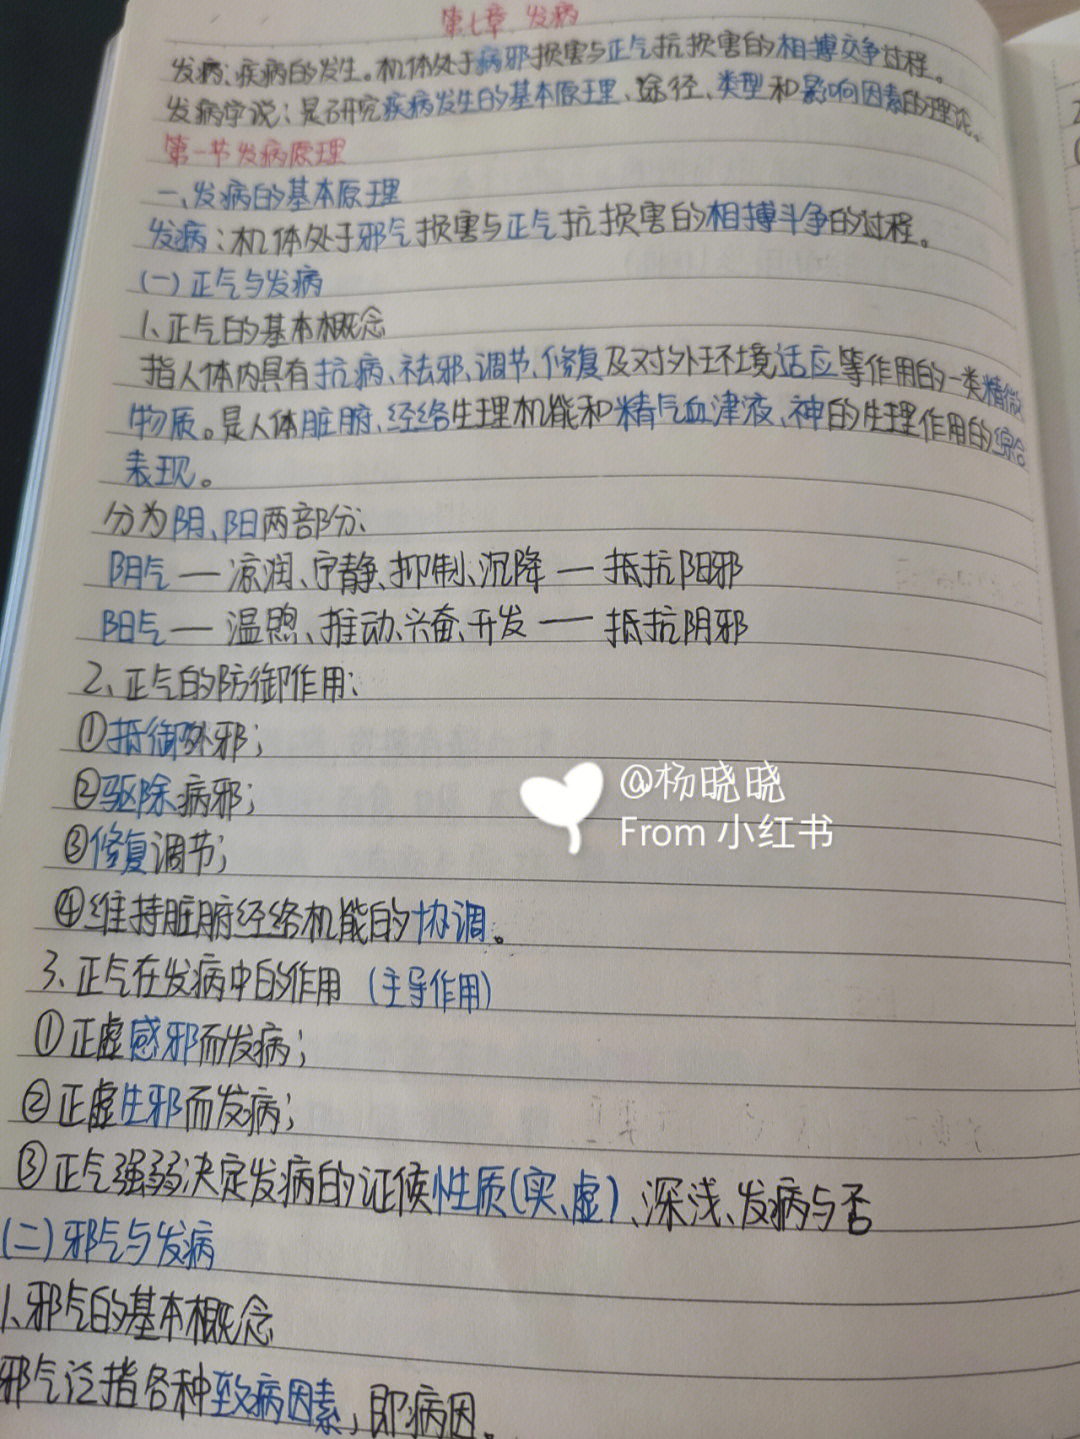 第七章 发病
发病:疾病的发生。机体处于病邪损害与正气抗损害的相搏交争过程。
发病学说:是研究疾病发生的基本原理、途径、类型和影响因素的理论。
第一节发病原理
一、发病的基本原理
发病:机体处于邪气损害与正气抗损害的相搏斗争的过程。
(一)正气与发病
1、正气的基本概念
指人体内具有抗病、祛邪、调节、修复及对外环境适应等作用的一类精微
物质。是人体脏腑、经络生理机能和精气血津液、神的生理作用的综合
表现。
分为阴、阳两部分:
阴气—凉润、宁静、抑制、沉降—抵抗阳邪
阳气—温煦、推动、兴奋、升发—抵抗阴邪
2、正气的防御作用:
①抵御外邪;
②驱除病邪;
③修复调节;
④维持脏腑经络机能的协调。
3、正气在发病中的作用(主导作用)
①正虚感邪而发病;
②正虚生邪而发病;
③正气强弱决定发病的证候性质(实、虚)、深浅、发病与否
(二)邪气与发病
1、邪气的基本概念
邪气泛指各种致病因素,即病因。
@杨晓晓
From 小红书